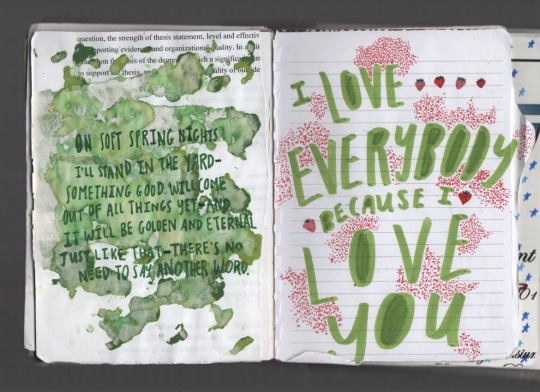 question, the strength of thesis statement, level and effectiv
porting evidenc and organizational quality. In a
sis of the degre ch a significan
to support thesis, ality of outside
ON SOFT SPRING NIGHTS
I'LL STAND IN THE YARD—
SOMETHING GOOD WILL COME
OUT OF ALL THINGS YET—AND
IT WILL BE GOLDEN AND ETERNAL
JUST LIKE THAT—THERE'S NO
NEED TO SAY ANOTHER WORD.
I LOVE
EVERYBODY
BECAUSE I
LOVE
YOU